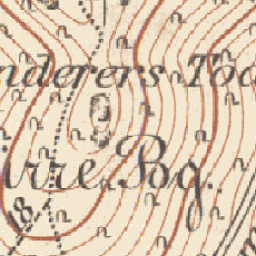 nderers Too
irre Pog.
18